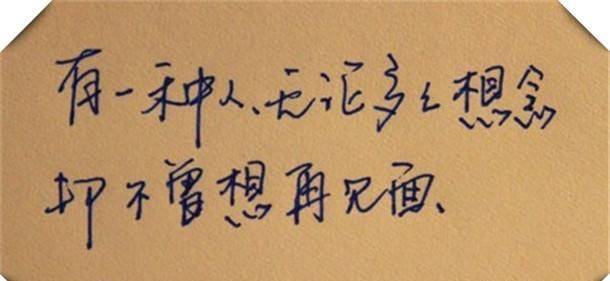 有一种人、无论多么想念
却不曾想再见面、